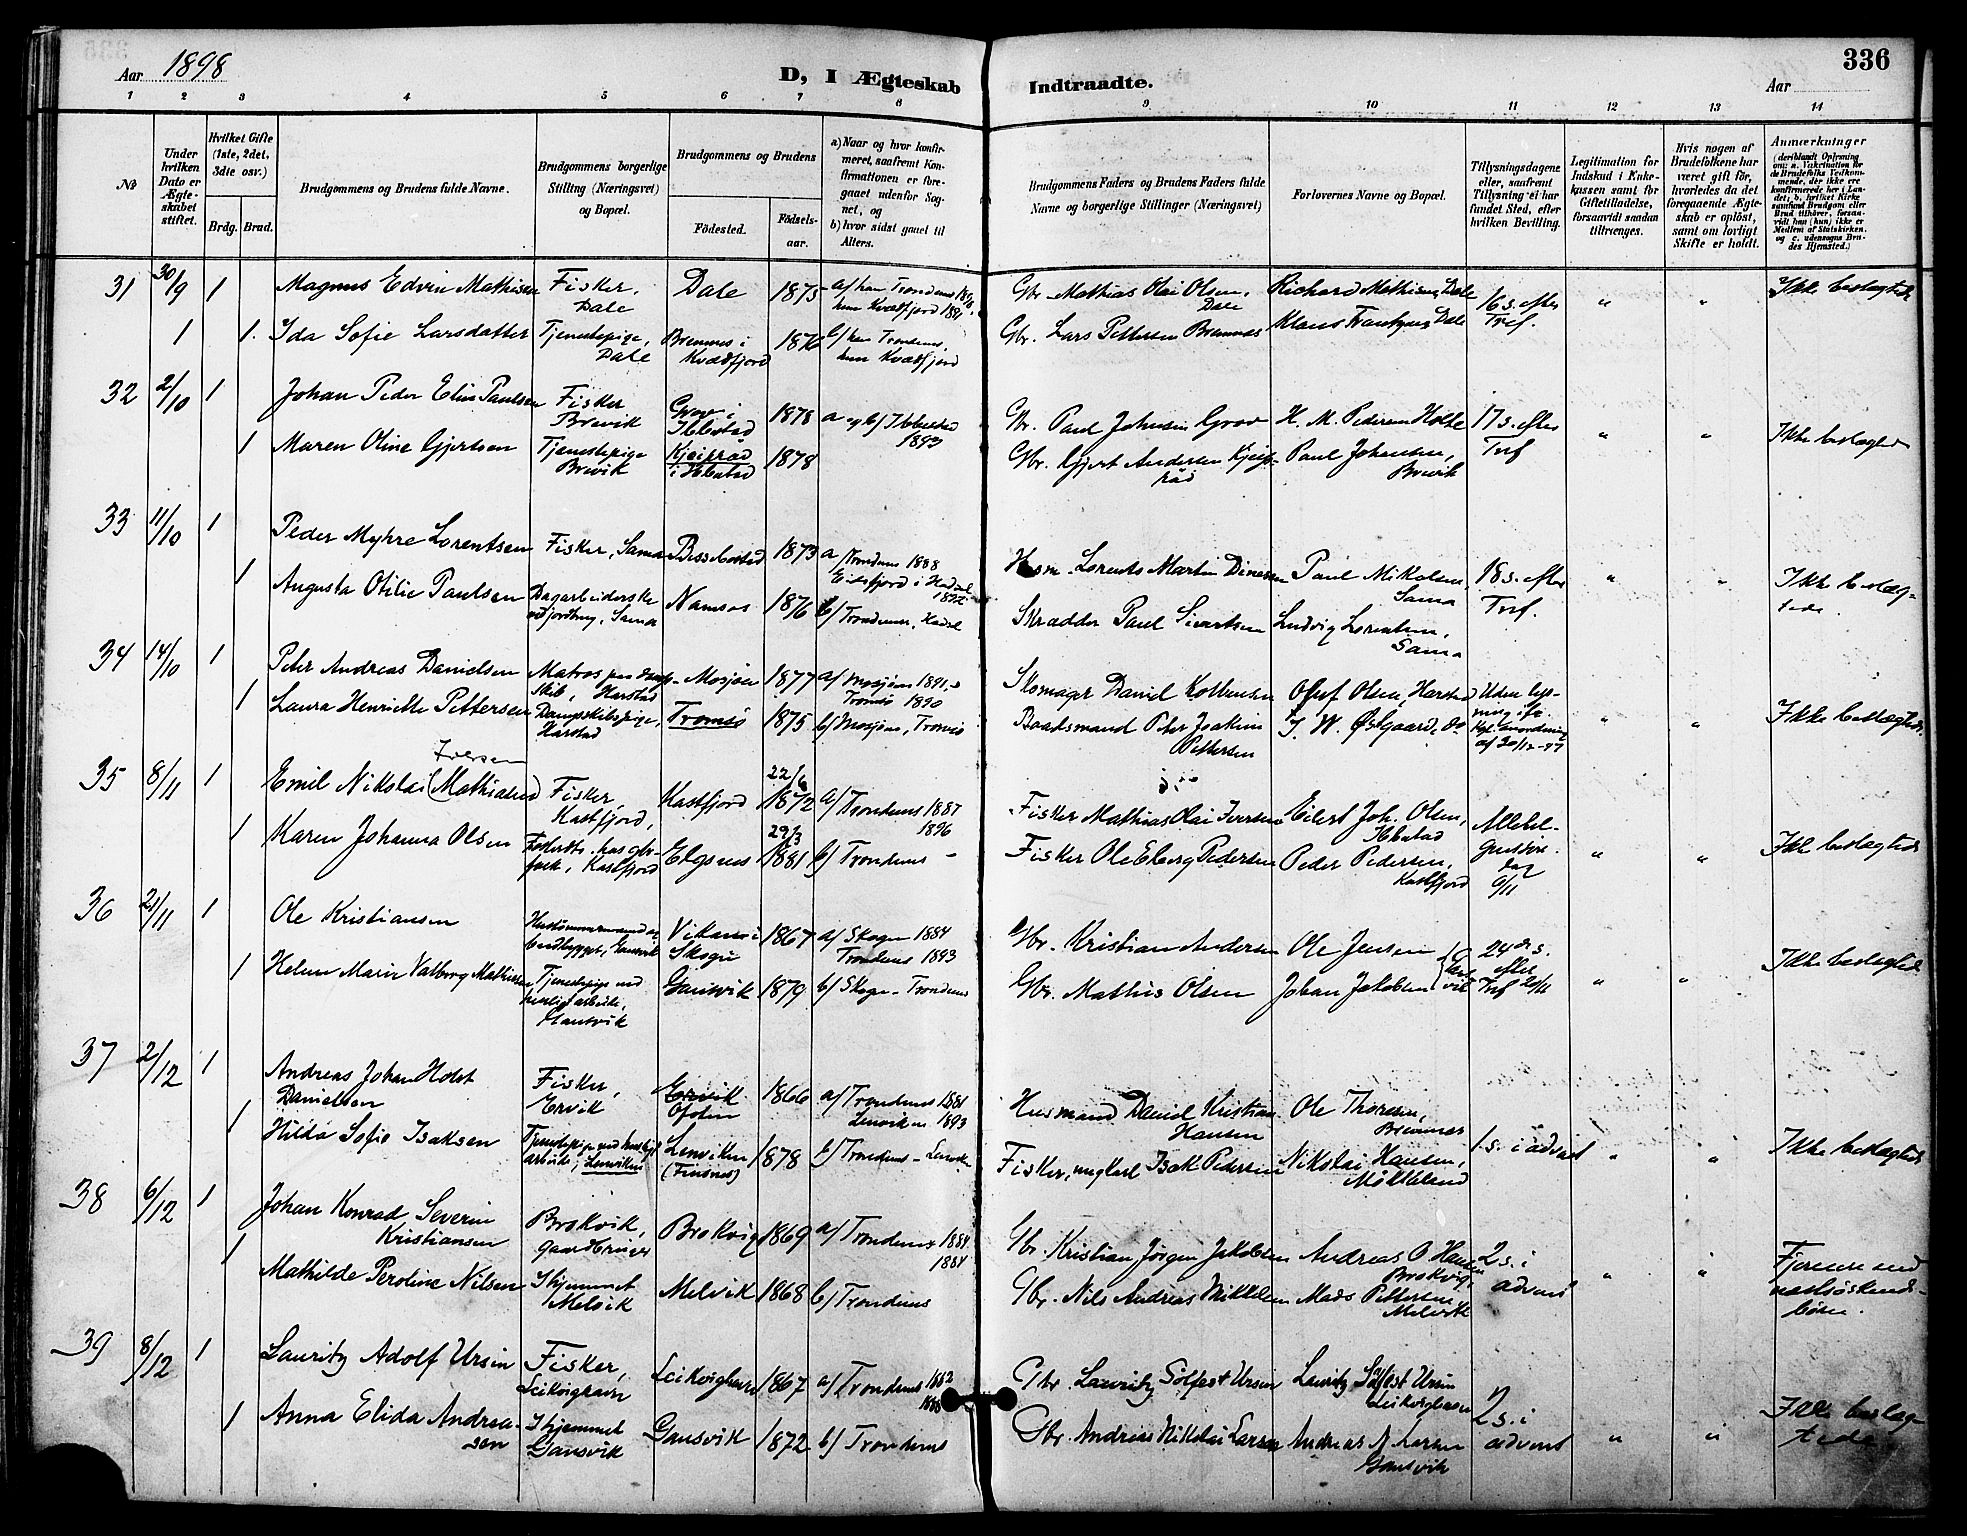 336
Aar 1898
D, I Ægteskab
Indtraadte.
Aar
1 2 3 4 5 6 7 8 9 10 11 12 13 14
№
Under hvilken Dato er Ægteskabet stiftet.
Hvilket Gifte (1ste, 2det, 3die osv.)
Brdg. Brud.
Brudgommens og Brudens fulde Navne.
Brudgommens borgerlige Stilling (Næringsvei) og Bopæl.
Brudgommens og Brudens
Födested.
Födselsaar.
a) Naar og hvor konfirmeret, saafremt Konfirmationen er foregaaet udenfor Sognet, og
b) hvor sidst gaaet til Alters.
Brudgommens Faders og Brudens Faders fulde Navne og borgerlige Stillinger (Næringsvei)
Forlovernes Navne og Bopæl.
Tillysningsdagene eller, saafremt Tillysning ei har fundet Sted, efter hvilken Bevilling.
Legitimation for Indskud i Enkekassen samt for Giftetilladelse, forsaavidt saadan tiltrænges.
Hvis nogen af Brudefolkene har været gift för, hvorledes da det foregaaende Ægteskab er oplöst, samt om lovligt Skifte er holdt.
Anmærkninger
31 30/9 1 Magnus Edvin Mathisen Fisker, Dale Dale 1875 a/ han Trondenes hun Kvædfjord 1891 Gbr. Mathias Olai Olsen, Dale Richard Mathisen, Dale 16 s. efter Tref. " " Ikke beslægtede
1 1. Ida Sofie Larsdatter Tjenestepige, Dale Bremnes i Kvædfjord 1876 b/ han Trondenes, hun Kvædfjord Gbr. Lars Pettersen Bremnes Klaus Dale
32 2/10 1 Johan Peder Elias Paulsen Fisker Brevik Grov i Ibbestad 1878 a og b/ Ibbestad 1893 Gbr. Paul Johansen Grov H. M. Pedersen Holte 17 s. efter Tref " " Ikke beslægtede
1 Maren Oline Gjertsen Tjenestepige Brevik Kjeiprød i Ibbestad 1878 Gbr. Gjert Andersen Kjeiprød Paul Johansen, Brevik
33 11/10 1 Peder Myhre Lorentsen Fisker, Sama 1873 a/ Trondenes 1888 Eidsfjord i Hadsel Hsm. Lorents Martin Paul Mikalsen, Sama 18 s. efter Tref. " " Ikke beslægtede
1 Augusta Otilie Paulsen Dagarbeiderske Sama Namsos 1876 b/ Trondenes, Hadsel Skrædder Paul Sivertsen Ludvig Lorentsen, Sama
34 14/10 1 Peter Andreas Danielsen Matros paa Dampskib, Harstad Mosjøen 1877 a/ Mosjøen 1891, Tromsø 1890 Skomager Daniel Olaf Olsen, Harstad Uden lysning " " Ikke beslægtede
1 Laura Henriette Pettersen Dampskibspige, Harstad Tromsø 1875 b/ Mosjøen, Tromsø Baadsmand Peter Joakim Pettersen J. W. Østgaard, do af 20/12-97
Iversen
35 8/11 1 Emil Nikolai (Mathiasen) Fisker, Kastfjord, Kastfjord 22/6 1872 a/ Trondenes 1887 1896 Fisker Mathias Olai Iversen Eilert Joh. Olsen, Ibbestad Allehelgensdag 6/11 " " Ikke beslægtede
1 Karen Johanna Olsen Kastfjord Elgsnes 29/3 1881 b/ Trondenes - Fisker Ole Eberg Pedersen Peder Pedersen, Kastfjord
36 21/11 1 Ole Kristiansen Gansvik Vikan i Skogn 1867 a/ Skogn 1884 Trondenes 1893 Gbr. Kristian Andersen Ole Jensen 24de s. efter Tref 20/11 " " Ikke beslægtede
1 Helene Marie Valborg Mathisen Tjenestepige ved huslig arbeide, Gansvik Gansvik 1879 b/ Skogn - Trondenes Gbr. Mathis Olsen Johan Jakobsen
37 2/12 1 Andreas Johan Holst Danielsen Fisker, Ervik Ervik 1866 a/ Trondenes 1881 Lenviken 1893 Husmand Daniel Kristian Hansen Ole Thoresen, Bremnes 1. s. i advent " " Ikke beslægtede
1 Hilda Sofie Isaksen Tjenestepige ved husligt arbeide, Lenviken Lenviken (Finsnes) 1878 b/ Trondenes - Lenviken Fisker, ungkarl Isak Pedersen Nikolai Hansen, Møkkeland
38 6/12 1 Johan Konrad Severin Kristiansen Brokvik, gaardbruger Brokvig 1869 a/ Trondenes 1884 1884 Gbr. Kristian Jörgen Jakobsen Andreas O. Hansen Brokvig 2 s. i advent " " Fjermere end næstsøskendebörn.
1 Mathilde Peroline Nilsen I hjemmet Melvik Melvik 1868 b/ Trondenes Gbr. Nils Andreas Mikkelsen Mads Pettersen Melvik
39 8/12 1 Lauritz Adolf Ursin Fisker, Leikvighavn Leikvighavn 1867 a/ Trondenes 1882 1888 Gbr. Lauritz Solfest Ursin Lauritz Solfest Ursin Leikvighavn 2 s. i advent " " Ikke beslægtede
1 Anna Elida Andreasen I hjemmet Gansvik Gansvik 1872 b/ Trondenes Gbr. Andreas Nikolai Larsen Andreas N. Larsen Gansvik